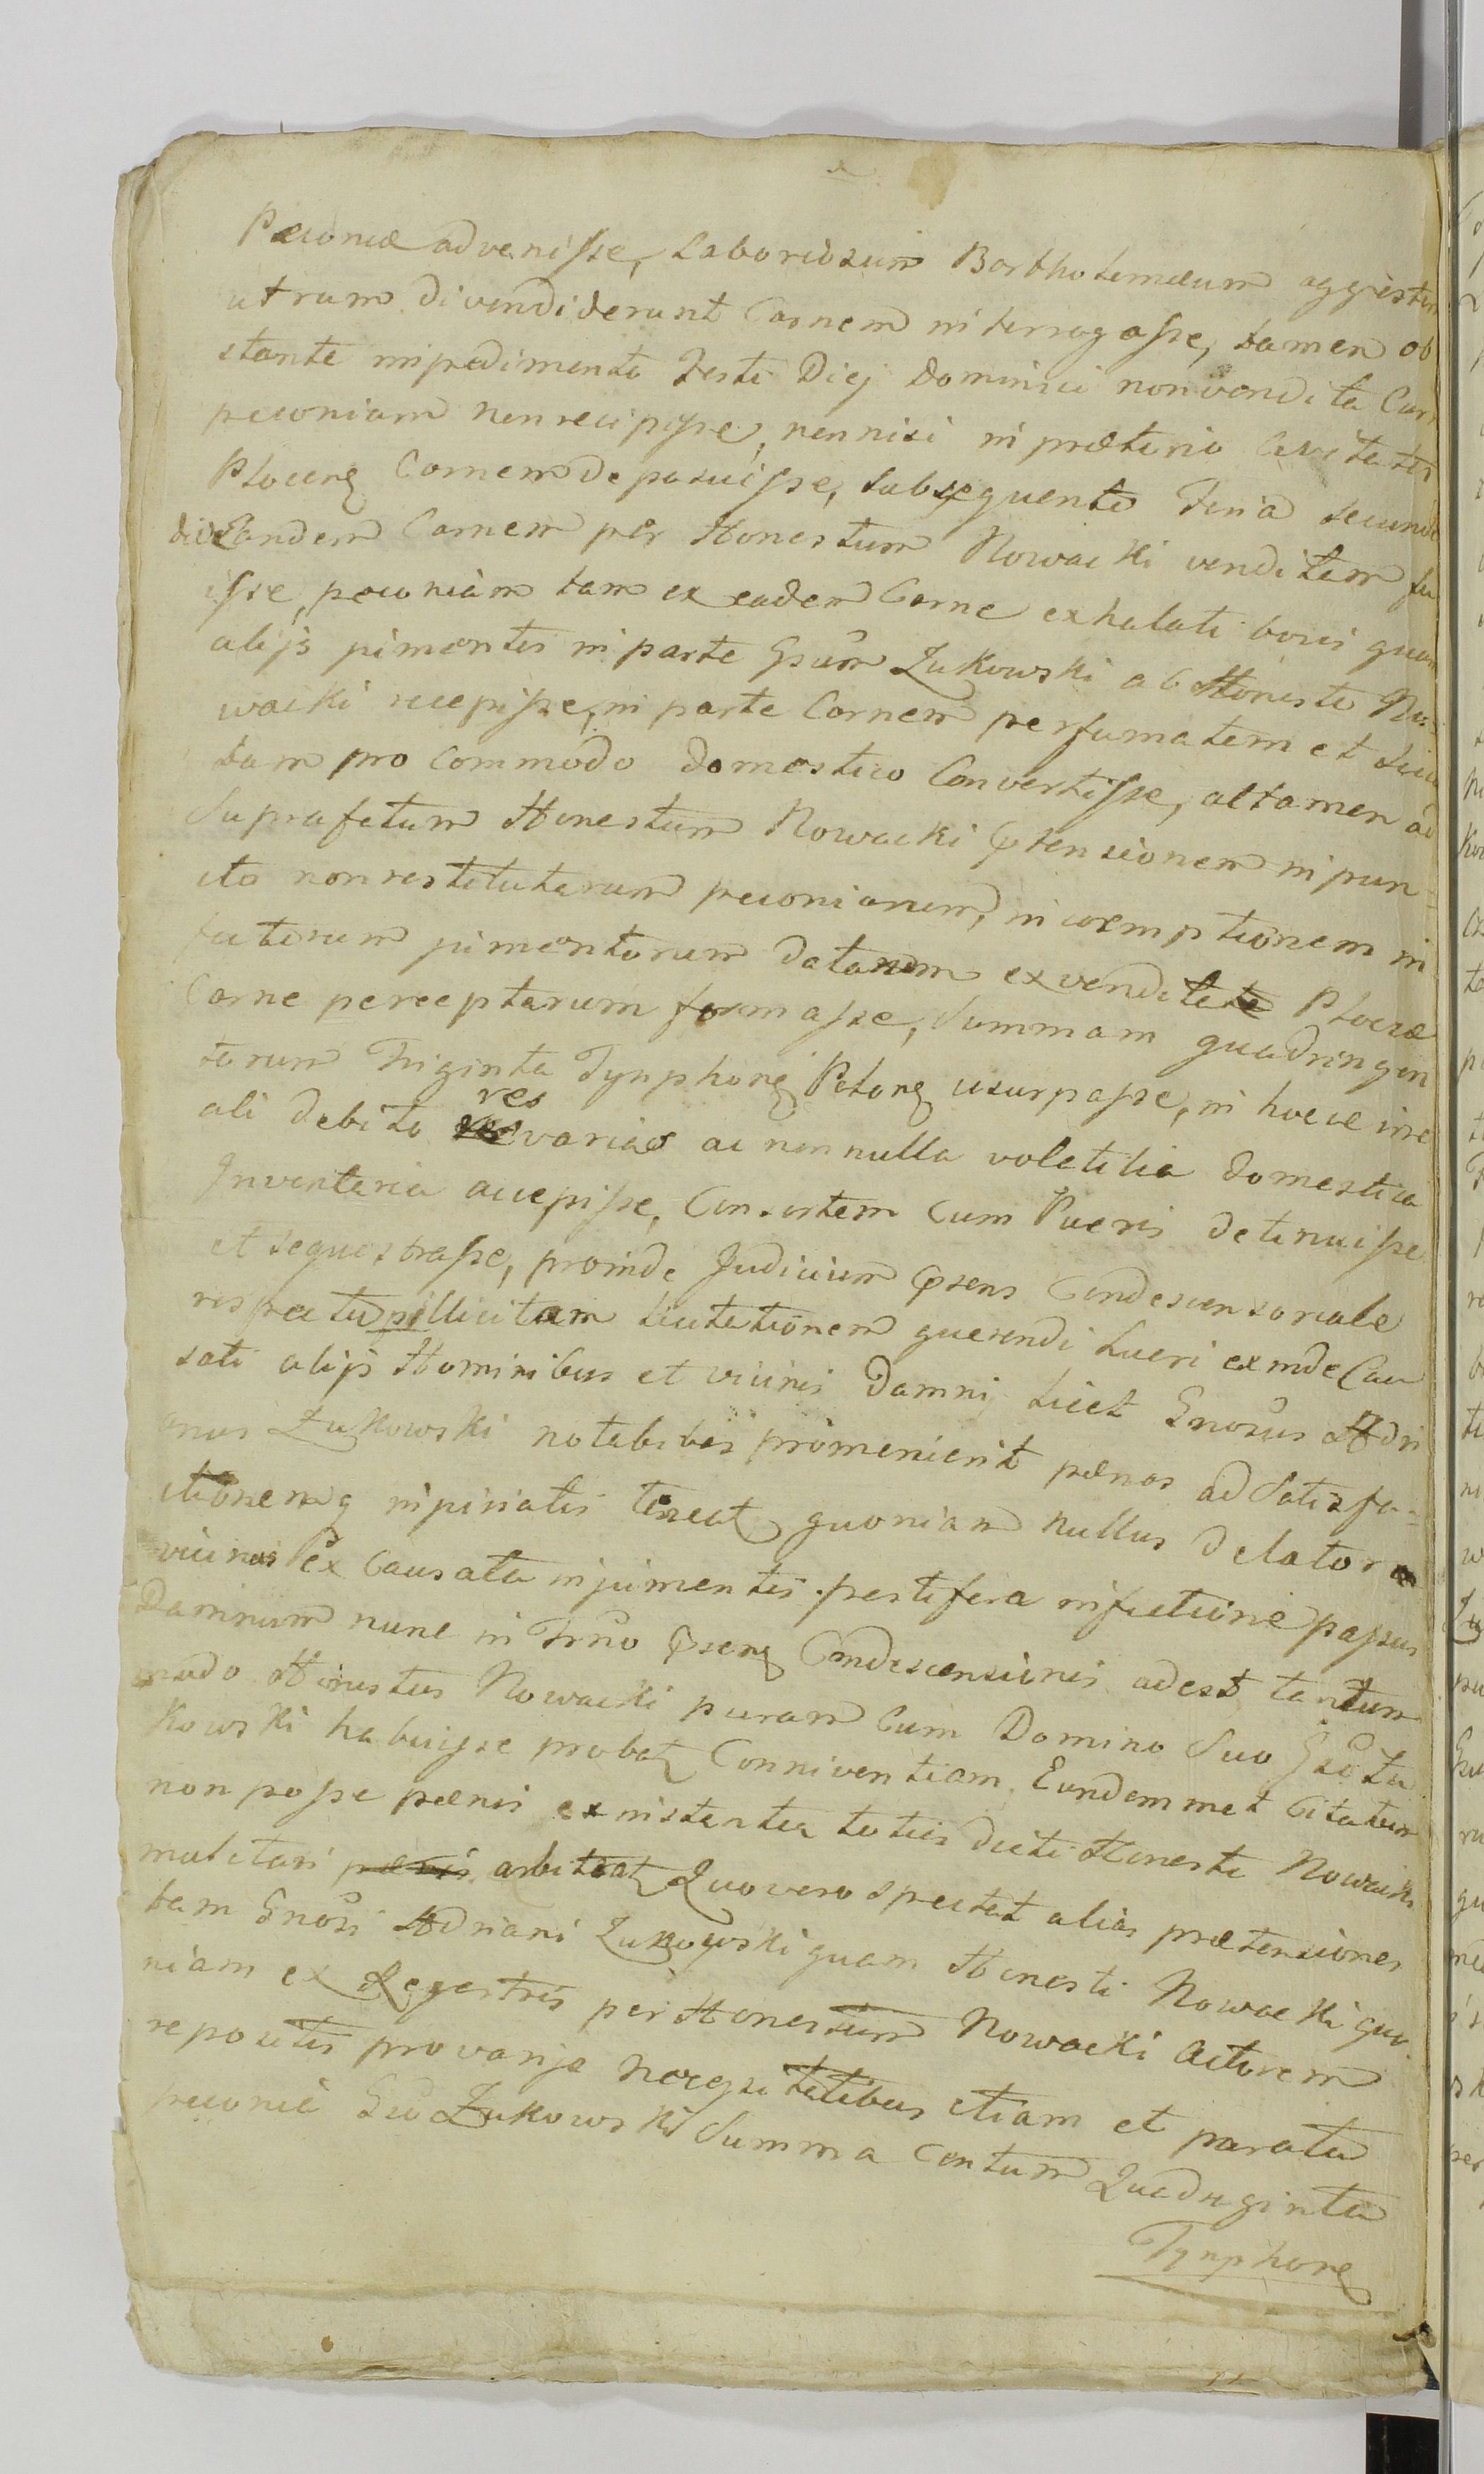 Pecuniæ advenisse, Laboriosum Barthotemæum aggressum
utrum divendiderunt Carnem interrogasse, tamen ob
stante impedimento Festi Diej Dominici non vendita Carne
pecuniam non recipisse, nonnisi in prætorio Civitatis
Plocens Carnem deposuisse, subsequente Feria secunda
die Eandem Carnem per Honestum Nowacki venditam fu
isse, pecuniam tam ex eadem Carne exhalati bovis quam
alijs jumentis in parte Gsum Zukowski ab Honesto No=
wacki recepisse, in parte Carnem perfumatam et sicca
tam pro Commodo domestico Convertisse, attamen ad
Suprafatum Honestum Nowacki Prtensionem in pun=
cto non restitutarum pecuniarum, in coemptionem in
fectorum jumentorum datarum ex vendita Plociæ
Carne perceptarum formasse, Summam quadringen
torum Triginta Tynphons Polons usurpasse, in hocce irre
ali debito res varias ac non nulla volatilia domestica
Inventaria accepisse, Consortem Cum Pueris detinuisse
et sequestrasse, proinde Judicium Prsens Condescensoriale
respectu illicitam sectationem querendi Lucri exinde Cau
sati alijs Hominibus et vicinis Damni, licet Gnosus Adri
anus Zukowski notabiles promeruerit pænas ad Satisfa=
ctionemq injuriatis teneat, quoniam nullus delator
vicinus ex Causata in jumentis pestifera infectione passus
Damnum nunc in Trno Prsens Condescensionis adest tantum
modo Honestus Nowacki puram Cum Domino Suo Gso Zu
kowski habuisse probat Conniventiam. Eundemmet Citatum
non posse pænis ex instantia toties dicti Honesti Nowacki
mulctari arbitrat, Quo vero spectat alias prætensiones
tam Gnosi Adriani Zukowski quam Honesti Nowacki quo
niam ex Regestris per Honestum Nowacki Actorem
repositis pro varijs necessitatibus etiam et parata
pecunia Gso Zukowski Summa Centum Quadraginta
Tynphons